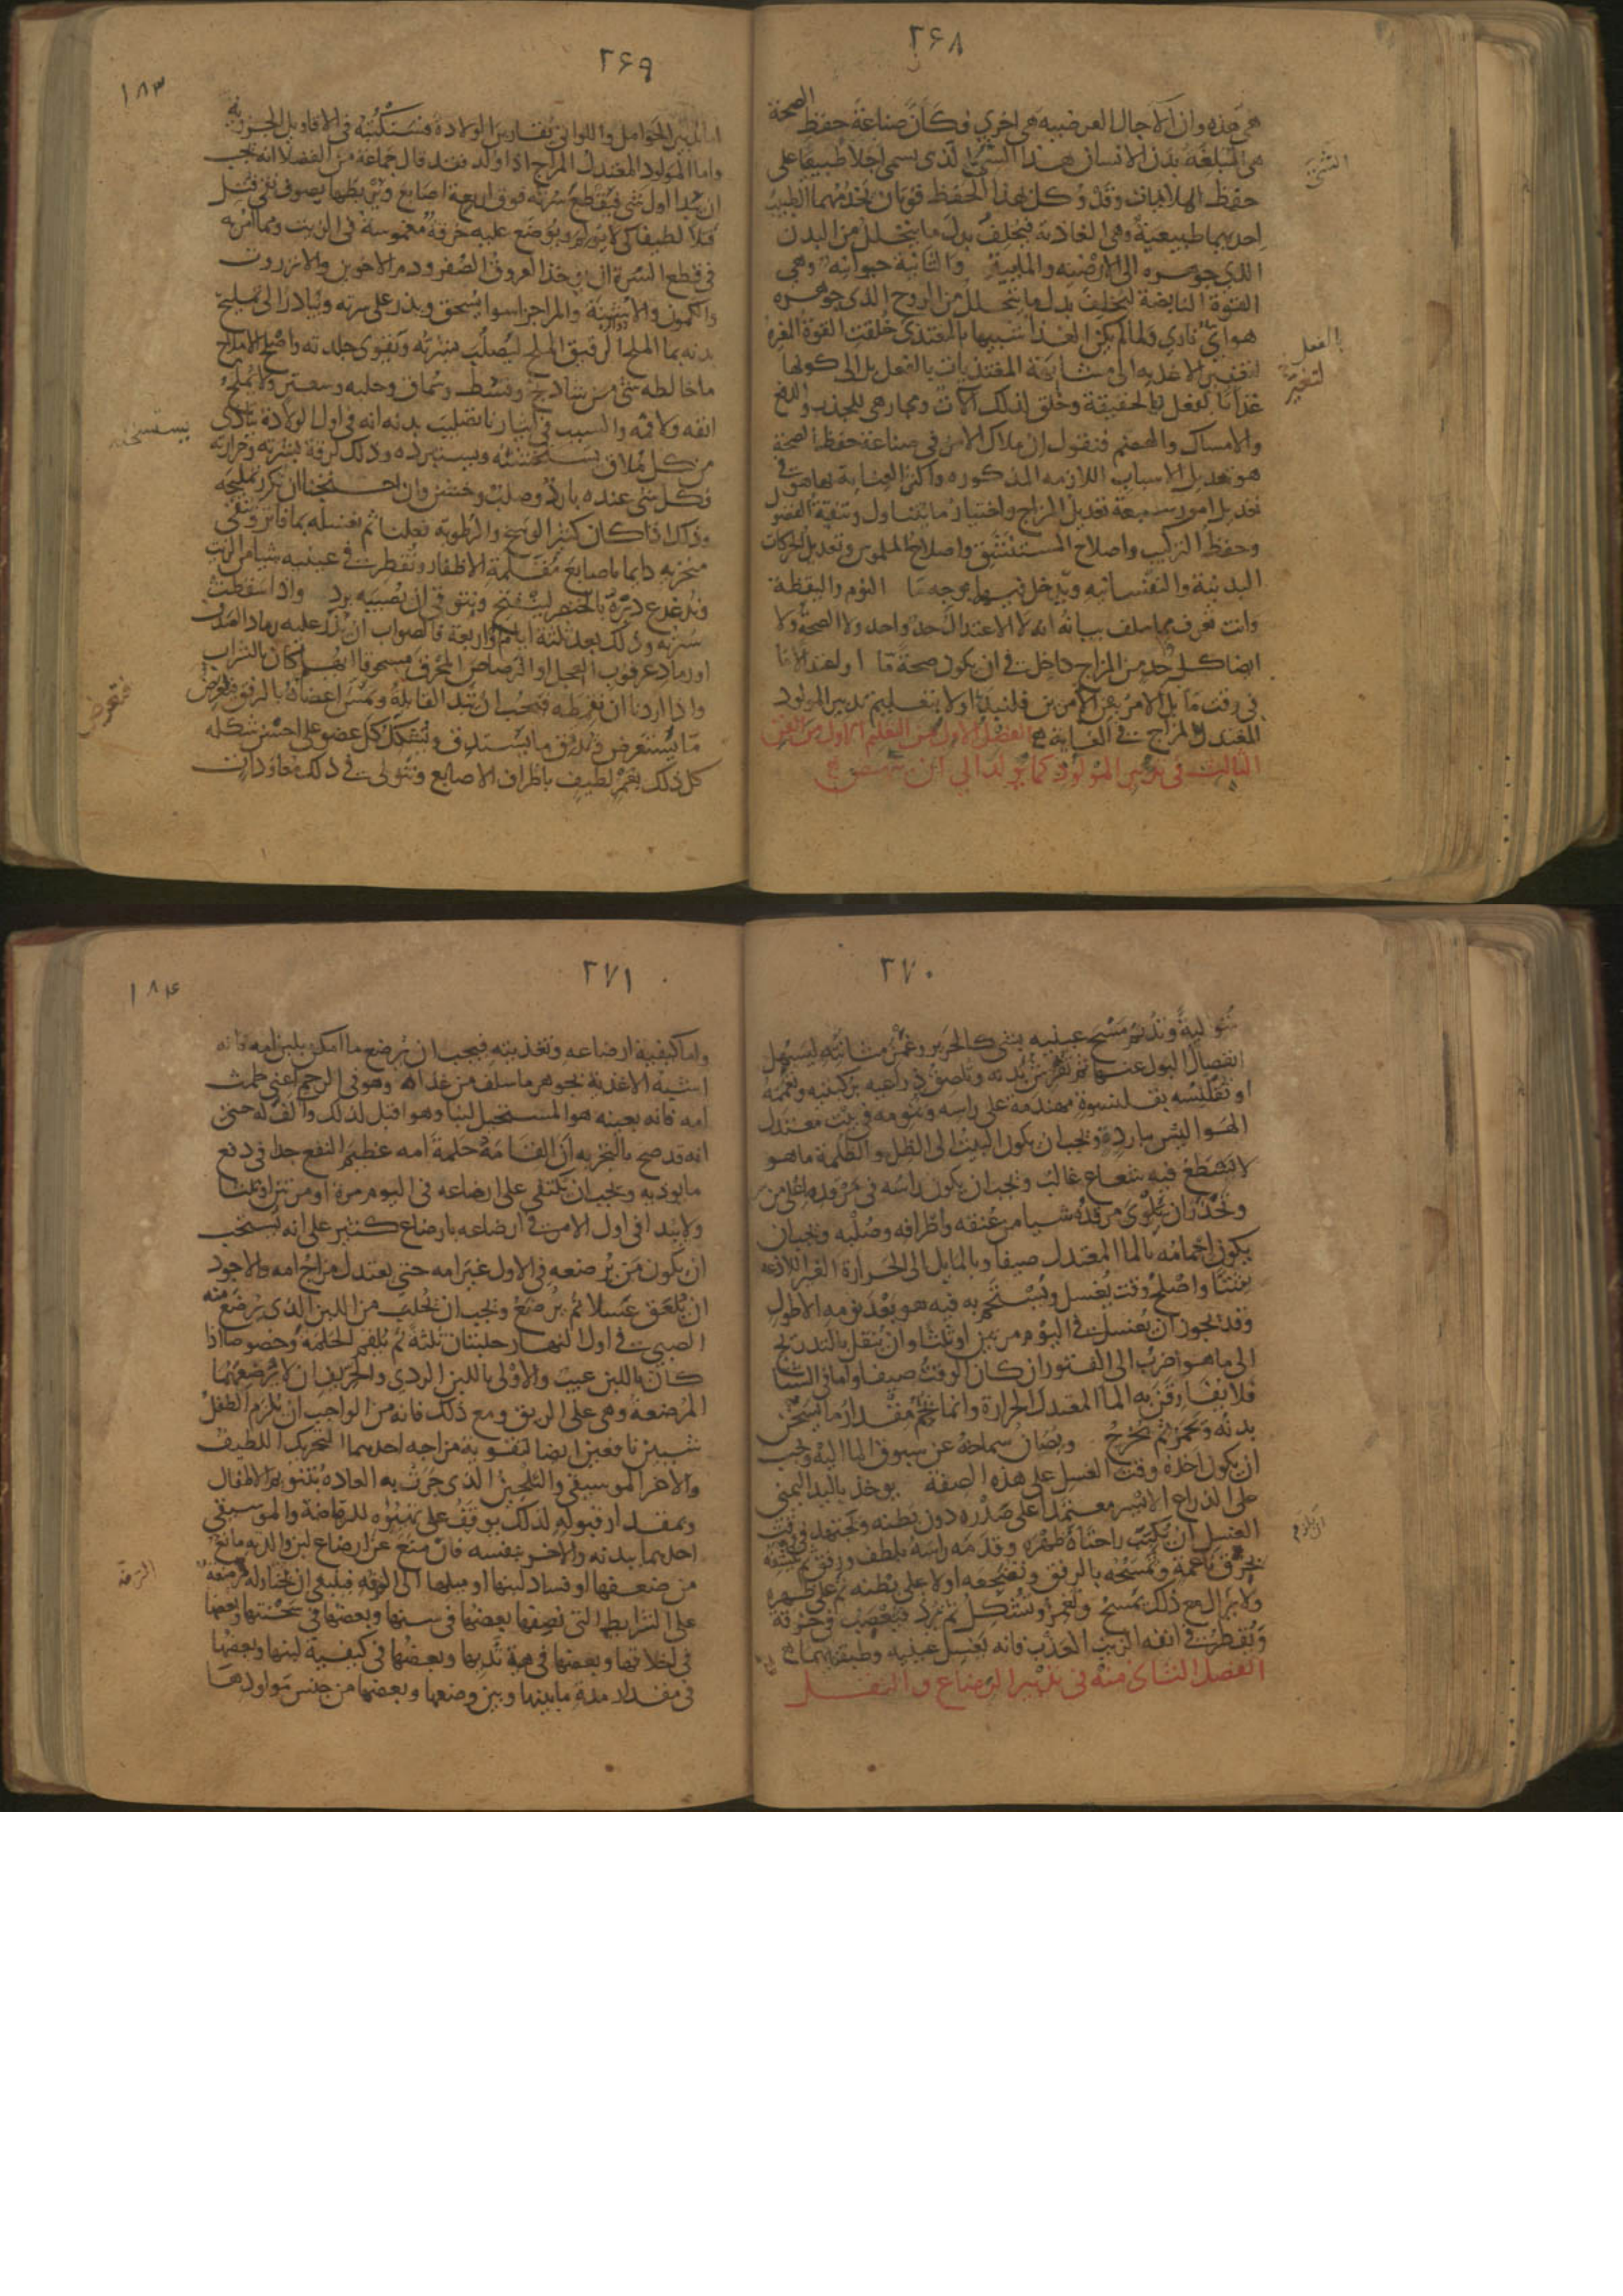 ٢٦٨
هى هذه وان الآجال العرضيه هى اخرى وكأن صناعة حفظ الصحة
هى المبلغة بدن الانسان هذا السن الذى يسمى اجلا طبيعيا على
حفظ الملايمات وقد وكل بهذا الحفظ قوتان تخدمهما الطبيب
احديهما طبيعية وهى الغاذية فتخلف بدل ما يتحلل من البدن
الذى جوهره الى الارضيه والمايية والثانية حيوانيه وهى
القوة النابضة لتخلف بدل ما يتحلل من الروح الذى جوهره
هوائى نارى ولما لم يكن الغذا شبيها بالمغتذى خلقت القوة المغيرة
لتغير الاغذيه الى مشابهة المغتذيات بالفعل بل الى كونها
غذاءا بالفعل بالحقيقة وخلق لذلك الات ومجارهى للجذب والدفع
والامساك والهضم فنقول ان ملاك الامر فى صناعة حفظ الصحة
هو تعديل الاسباب اللازمه المذكوره واكثر العناية بها هو فى
تعديل امور سبعة تعديل المزاج واختيار ما يتناول وتنقية الفضول
وحفظ التركيب واصلاح المستنشق واصلاح الملبوس وتعديل الحركات
البدنية والنفسانيه ويدخل فيها بوجه ما النوم واليقظة
وانت تعرف مما سلف بيانه انه لا الاعتدال حد واحد ولا الصحة ولا
ايضا كل واحد من المزاج داخل فى ان يكون صحة ما او اعتدالا ما
فى وقت ما بل الامر بين الامرين فلنبدا اولا بتعليم تدبير المولود
المعتدل المزاج فى الغاية الفصل الاول من التعليم الاول من الفن
الثالث فى تدبير المولود كما يولد الى ان ينهض
بالفعل
لتغير
٢٦٩
١٨٣
اما تدبير الحوامل واللواتى يقاربن الولادة فسنكتبه فى الاقاويل الجزويه
واما المولود المعتدل المزاج اذا ولد فقد قال جماعة من الفضلا انه يجب
ان يبدا اول شى فيقطع سرته فوق اربعة اصابع وتربطها بصوف نقى فتل
فتلا لطيفا كى لا يؤلم ويوضع عليه خرقة مغموسة فى الزيت ومما امر به
فى قطع السرة ان يوخذ العروق الصفر ودم الاخوين والانزروت
والكمون والاشنة والمر اجزا سوا يسحق ويذر على سرته ويبادر الى تمليح
بدنه بما الملح الرقيق ليصلب بشرته وتقوى جلدته واصلح الاملاح
ما خالطه شى من شادنج وقسط وسماق وحلبه وسعتر ولا يملح
انفه ولا فمه والسبب فى ايثارنا تصليب بدنه انه فى اول الولادة يتاذى
من كل ملاق يستخشنه ويستبرده وذلك لرقة بشرته وحرارته
فكل شى عنده بارد وصلب وخشن وان احتجنا ان نكرر تمليحه
وذلك اذا كان كثير الوسخ والرطوبة فعلنا ثم نغسله بما فاتر وننقى
منخريه دايما باصابع مقلمة الاظفار ونقطر فى عينيه شيا من الزيت
وندغدغ دبره بالخنصر لينفتح ونتوقى ان يصيبه برد واذا سقطت
سرته وذلك بعد ثلثة ايام او اربعة فالصواب ان يذر عليه رماد الصدف
او رماد عرقوب العجل او الرصاص المحرق مسحوقا ايهما كان بالشراب
واذا اردنا ان نقمطه فيجب ان تبدا القابلة وتمس اعضاه بالرفق فتعرض
ما يستعرض وتدق ما يستدق وتشكل كل عضو على احسن شكله
كل ذلك بغمز لطيف باطراف الاصابع وتتوالى فى ذلك معاودات
فتعرض
٢٧٠
متوالية وتديم مسح عينيه بشى كالحرير وغمز مثانته ليسهل
انفصال البول عنها ثم تفرش يديه وتلصق ذراعيه بركبتيه وتعممه
او تقلنسه بقلنسوة مهندمة على راسه وتنومه فى بيت معتدل
الهوا ليس بارد ويجب ان يكون البيت الى الظل والظلمة ما هو
لا يسطع فيه شعاع غالب ويجب ان يكون راسه فى مرقده اعلى من
ويحذر ان يلوى مرقده شيا من عنقه واطرافه وصلبه ويجب ان
يكون احمامه بالما المعتدل صيفا وبالمايل الى الحرارة الغير اللاذعه
شتا واصلح وقت يغسل ويستحم به فيه هو بعد نومه الاطول
وقد يجوز ان يغسل فى اليوم مرتين او ثلثا وان ينقل بالتدريج
الى ما هو اضرب الى الفتور ان كان الوقت صيفا واما فى الشتا
فلا يفارقن به الما المعتدل الحرارة وانما يحمم مقدار ما يسخن
بدنه ويحمر ثم يخرج ويصان سماخه عن سبوق الما اليه ويجب
ان يكون اخذه وقت الغسل على هذه الصفة يوخذ باليد اليمنى
على الذراع الايسر معتمدا على صدره دون بطنه ويجتهد فى وقت
الغسل ان تمس راحتاه ظهره وقدمه راسه بلطف ورفق ثم ينشفه
بخرق ناعمة وتمسحه بالرفق وتضجعه اولا على بطنه ثم على ظهره
ولا يزال مع ذلك يمسح ويغمز ويشكل ثم يرد فيعصب فى خرقة
ويقطر فى انفه الزيت العذب فانه يغسل عينيه وطبقاتهما
الفصل الثانى منه فى تدبير الرضاع والنقل
٢٧١
١٨٤
واما كيفية ارضاعه وتغذيته فيجب ان يرضع ما امكن بلبن امه فانه
اشبه الاغذية بجوهر ما سلف من غذائه وهو فى الرحم اعنى طمث
امه فانه بعينه هو المستحيل لبنا وهو اقبل لذلك وآلف له حتى
انه قد صح بالتجربه ان القامه حلمة امه عظيم النفع جدا فى دفع
ما يوذيه ويجب ان يكتفى على ارضاعه فى اليوم مرة او مرتين او ثلثا
ولا يبدا فى اول الامر فى ارضاعه بارضاع كثير على انه يستحب
ان يكون من يرضعه فى الاول غير امه حتى يعتدل مزاج امه والاجود
ان يلعق عسلا ثم يرضع ويجب ان يحلب من اللبن الذى يرضع منه
الصبى فى اول النهار حلبتان ثلثة ثم يلقم الحلمة وخصوصا اذا
كان باللبن عيب والاولى باللبن الردى والحريف ان لا ترضعهما
المرضعة وهى على الريق ومع ذلك فانه من الواجب ان يلزم الطفل
شيئين نافعين ايضا لتقوية مزاجه احديهما التحريك اللطيف
والاخر الموسيقى والتلحين الذى جرت به العاده لتنويم الاطفال
وبمقدار قبوله لذلك يوقف على تهيئه للرياضة والموسيقى
احديهما ببدنه والاخر بنفسه فان منع عن ارضاع لبن والدته مانع
من ضعفها او فساد لبنها او ميلها الى الرقه فينبغى ان تختار له مرضعة
على الشرايط التى نصفها بعضها فى سنها وبعضها فى سحنتها وبعضها
فى اخلاقها وبعضها فى هية ثديها وبعضها فى كيفية لبنها وبعضها
فى مقدار مدة ما بينها وبين وضعها وبعضها من جنس مولودها